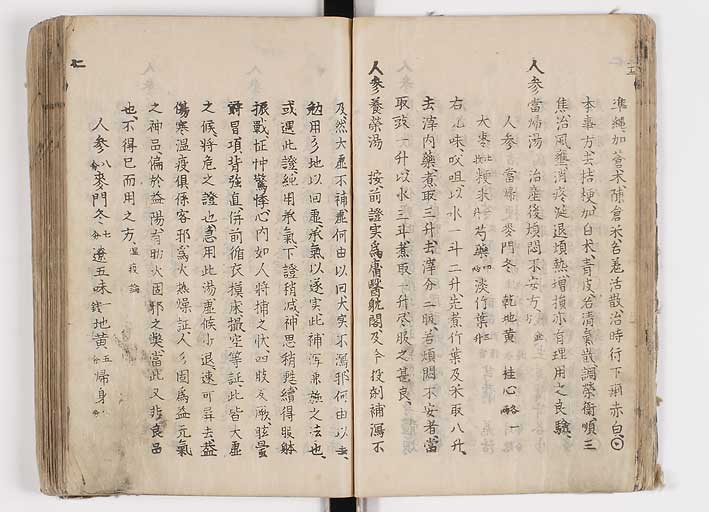 準繩加蒼朮陳倉米名卷活散治時行下痢赤白
本事方去桔梗加白朮青皮名清氣散調榮衛順三
焦治風壅消痰涎退煩熱增損亦有理用之良驗
人參當歸湯 治產後煩悶不安方
人參 當歸 麥門冬 乾地黃 桂心 一
大棗 粳米 芍藥 淡竹葉
右 味㕮咀以水一斗二升先煮竹葉及米取八升
去滓內藥煮取三升去滓分三服若煩悶不安者當
取豉一升以水三斗煮取一升尽服之甚良
人參養榮湯 按前證實為庸醫躭閣及今投剤補瀉不
及然大虛不補虛何由以回大實不瀉邪何由以去
勉用参地以回虛承氣以逐实此補瀉兼施之法也
或遇此證純用承氣下證稍減神思稍甦續得服躰
振戰怔忡驚悸心內如人將捕之狀四肢反厥眩暈
鬱冒項背強直併前循衣摸床撮空等証此皆大虛
之候將危之證也急用此湯虛候少退速可弃去蓋
傷寒溫疫俱係客邪為火热燥証人参固為益元氣
之神品偏於益陽有助火固邪之獘當此又非良品
也不得已而用之方 溫疫論
人參 八分 麥門冬 七分 遼五味 一錢 地黃 五分 歸身